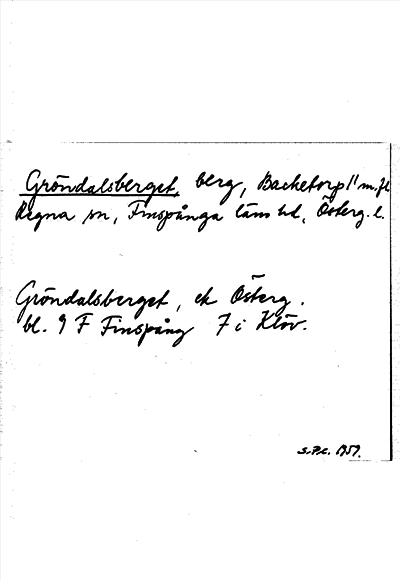 Gröndalsberget, berg, Backetorp 1¹ m.fl.
Regna sn, Finspånga läns hd, Österg. l.
Gröndalsberget, ek Österg.
bl. 9 F Finspång 7 i Klöv.
S.P.C. 1959.